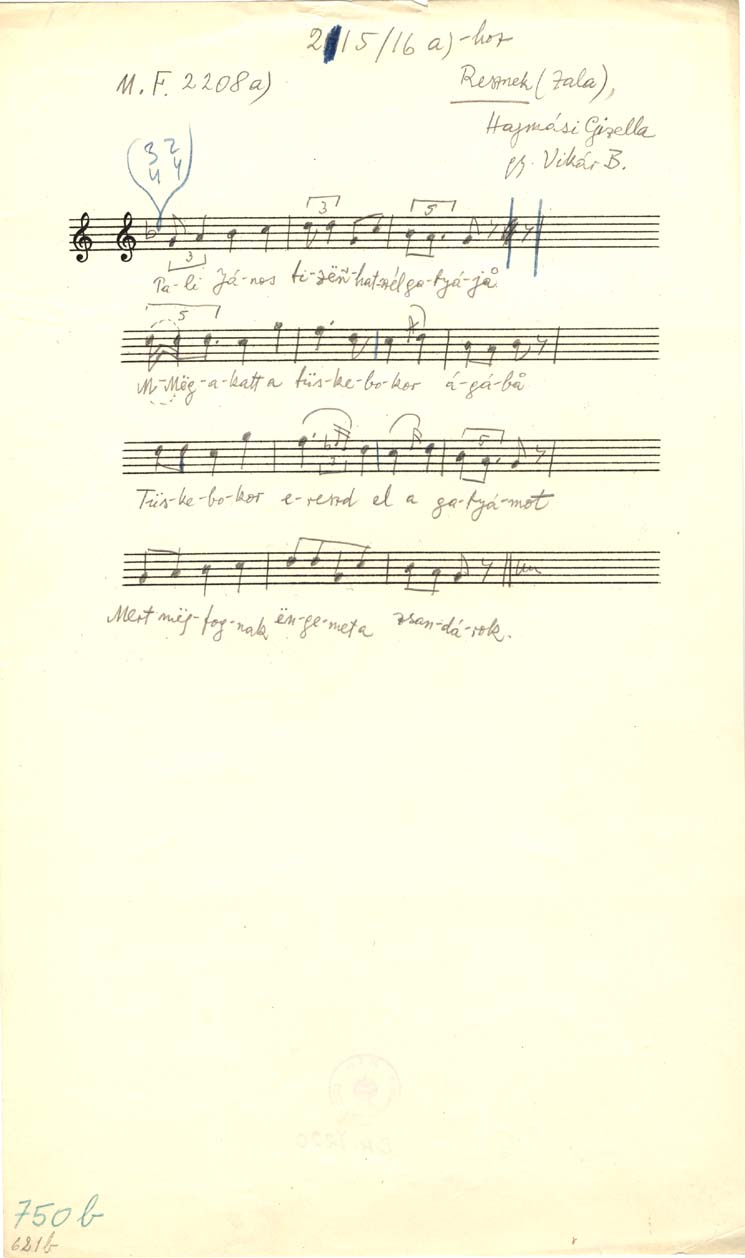 2 15/16 a)-hoz
M. F. 2208a)
Resznek (Zala),
Hajmási Gizella
gy. Vikár B.
3 2
4 4
3 5
3
Pa-li Já-nos ti-zëñ-hat-szél ga-tyá-jå
5
M-Mëg-a-katt a tüs-ke-bo-kor á-gá-bå
3 5
Tüs-ke-bo-kor e-reszd el a ga-tyá-mot
Mert mëg-fog-nak ën-ge-met a zsan-dá-rok.
750 b
621b